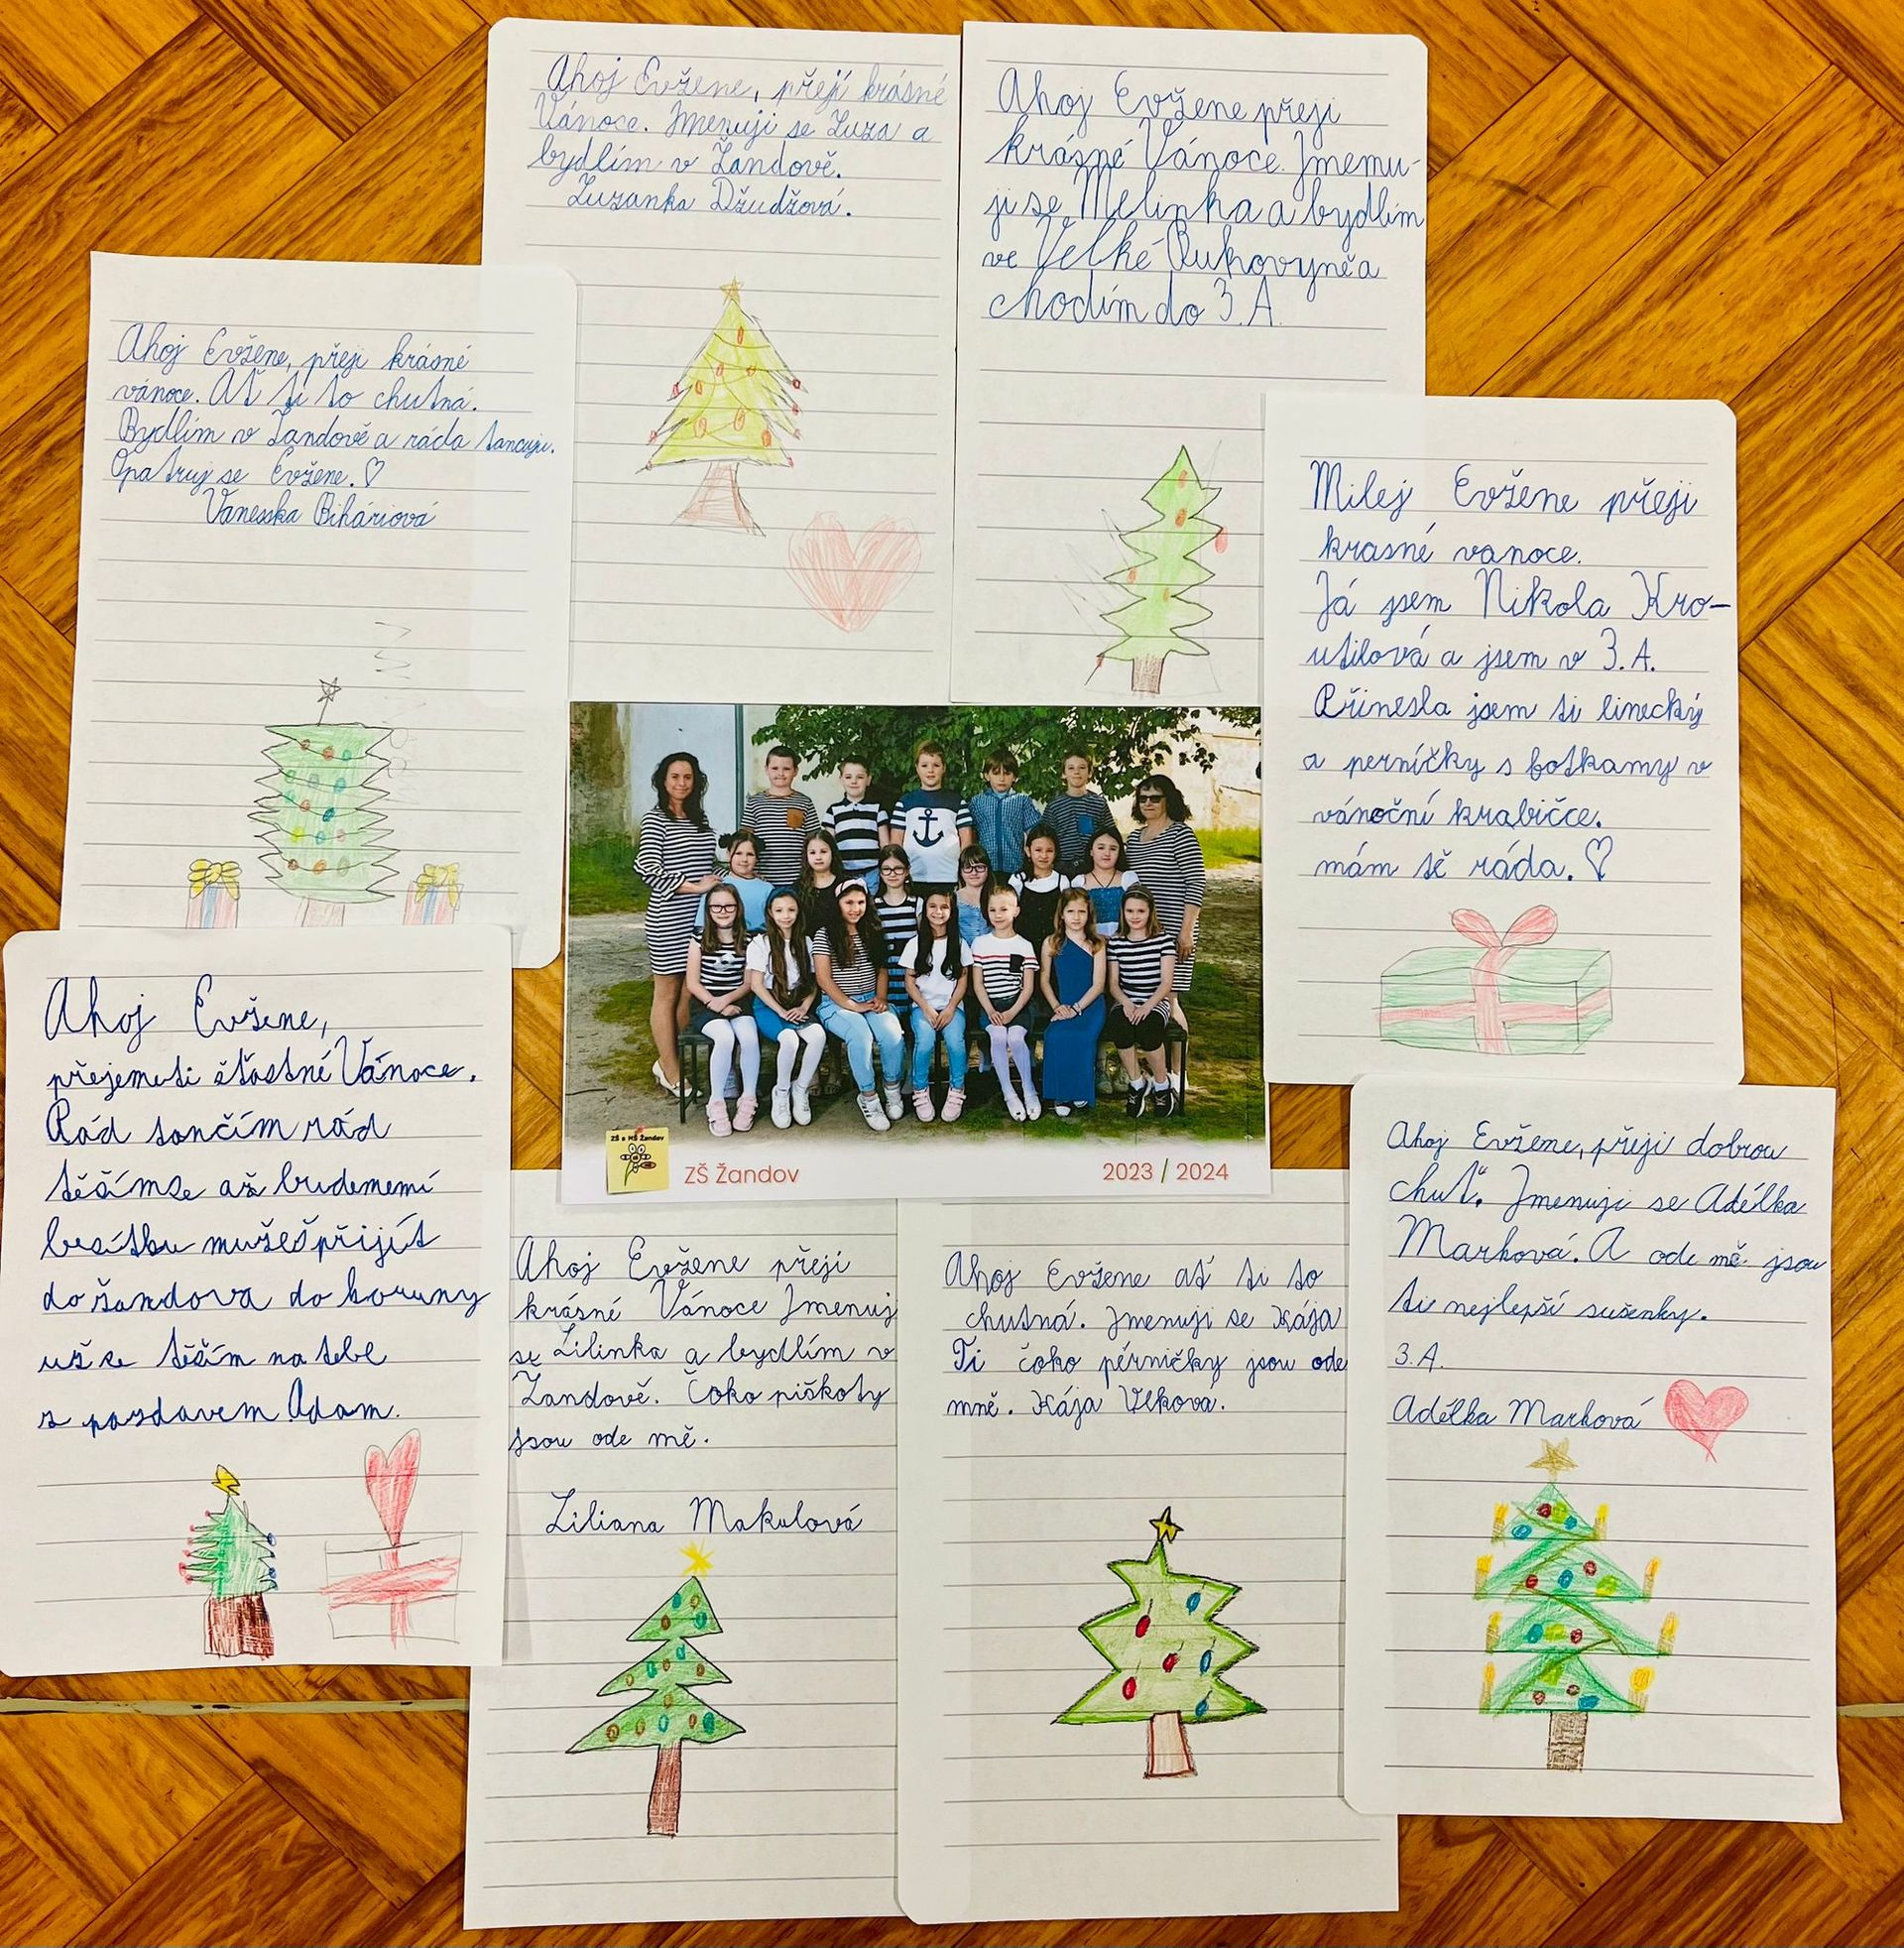 Ahoj Evžene, přejí krásné
Vánoce. Jmenuji se Zuza a
bydlím v Žandově.
Zuzanka Džudžová.
Ahoj Evžene přeji
krásné Vánoce. Jmemu-
ji se Melinka a bydlím
ve Velké Bukovyně a
chodím do 3. A.
Ahoj Evžene, přeji krásné
vánoce. Ať ti to chutná.
Bydlím v Žandově a ráda tancuji.
Opatruj se Evžene. ♡
Vanesska Biháriová
Milej Evžene přeji
krasné vanoce.
Já jsem Nikola Kro-
utilová a jsem v 3. A.
Přinesla jsem ti linecký
a perníčky s fotkamy v
vánoční krabičce.
mám tě ráda. ♡
ZŠ a MŠ Žandov
ZŠ Žandov
2023 / 2024
Ahoj Evžene,
přejemeti štastné Vánoce.
Rád tančím rád
těšímse až budememí
besítku mužeš přijít
do žandova do koruny
už se těším na tebe
s pozdavem Adam.
Ahoj Evžene přeji
krásné Vánoce Jmenuj
se Lilinka a bydlím v
Žandově. Čoko piškoty
jsou ode mě.
Liliana Makulová
Ahoj Evžene ať ti to
chutná. Jmenuji se Kája
Ti čoko pérničky jsou ode
mně. Kája Vlková.
Ahoj Evžene, přeji dobrou
chuť. Jmenuji se Adélka
Marková. A ode mě jsou
ti nejlepší sušenky.
3. A.
Adélka Marková